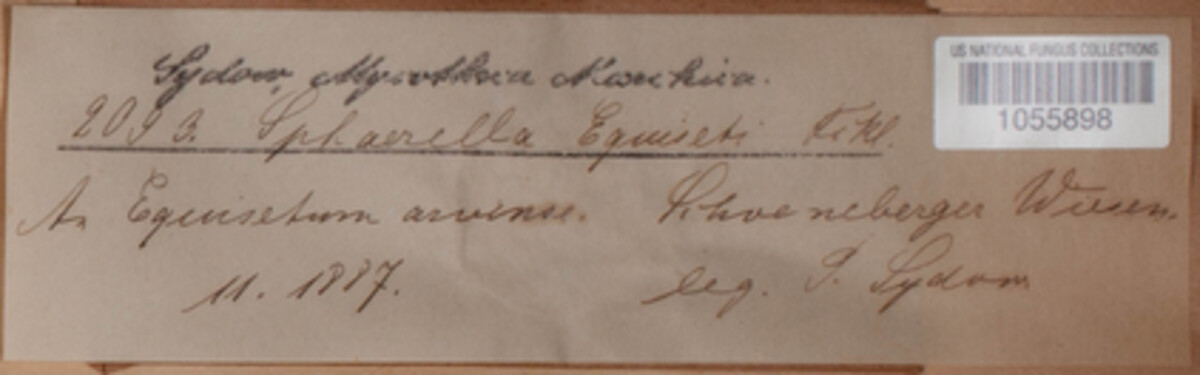 Sydow, Mycotheca Marchica.
US NATIONAL FUNGUS COLLECTIONS
1055898
2093. Sphaerella Equiseti Fckl.
An Equisetum arvense. Schoeneberger Wiesen.
11. 1887. leg. P. Sydow